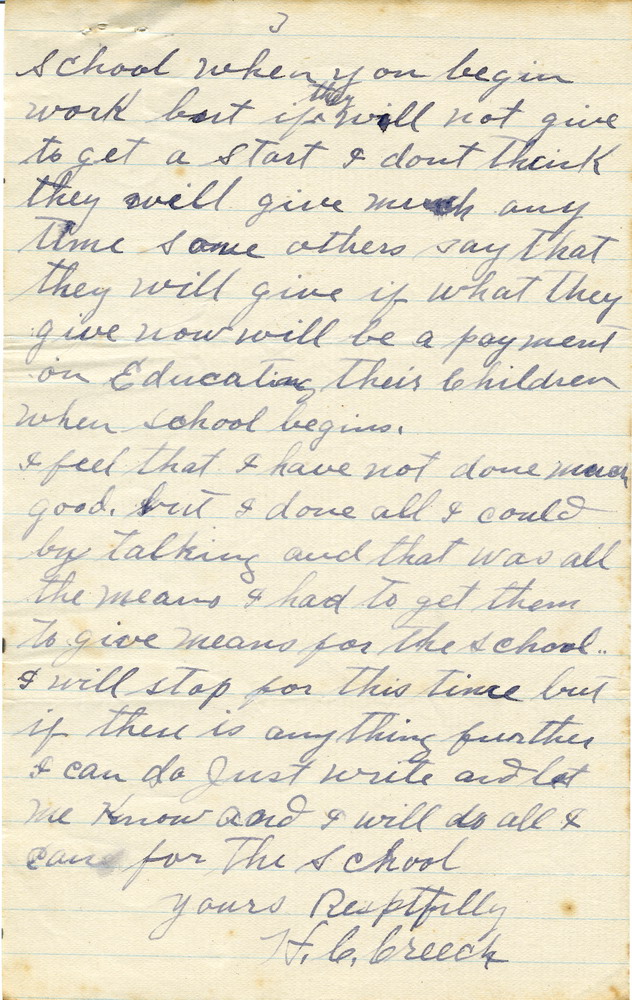 3
school when you begin
work but if they will not give
to get a start I dont think
they will give much any
time some others say that
they will give if what they
give now will be a payment
on Educating their Children
when school begins.
I feel that I have not done much
good. but I done all I could
by talking and that was all
the means I had to get them
to give means for the school..
I will stop for this time but
if there is any thing further
I can do Just write and let
me Know and I will do all I
can for the school
yours Resptfully
H. C. Creech